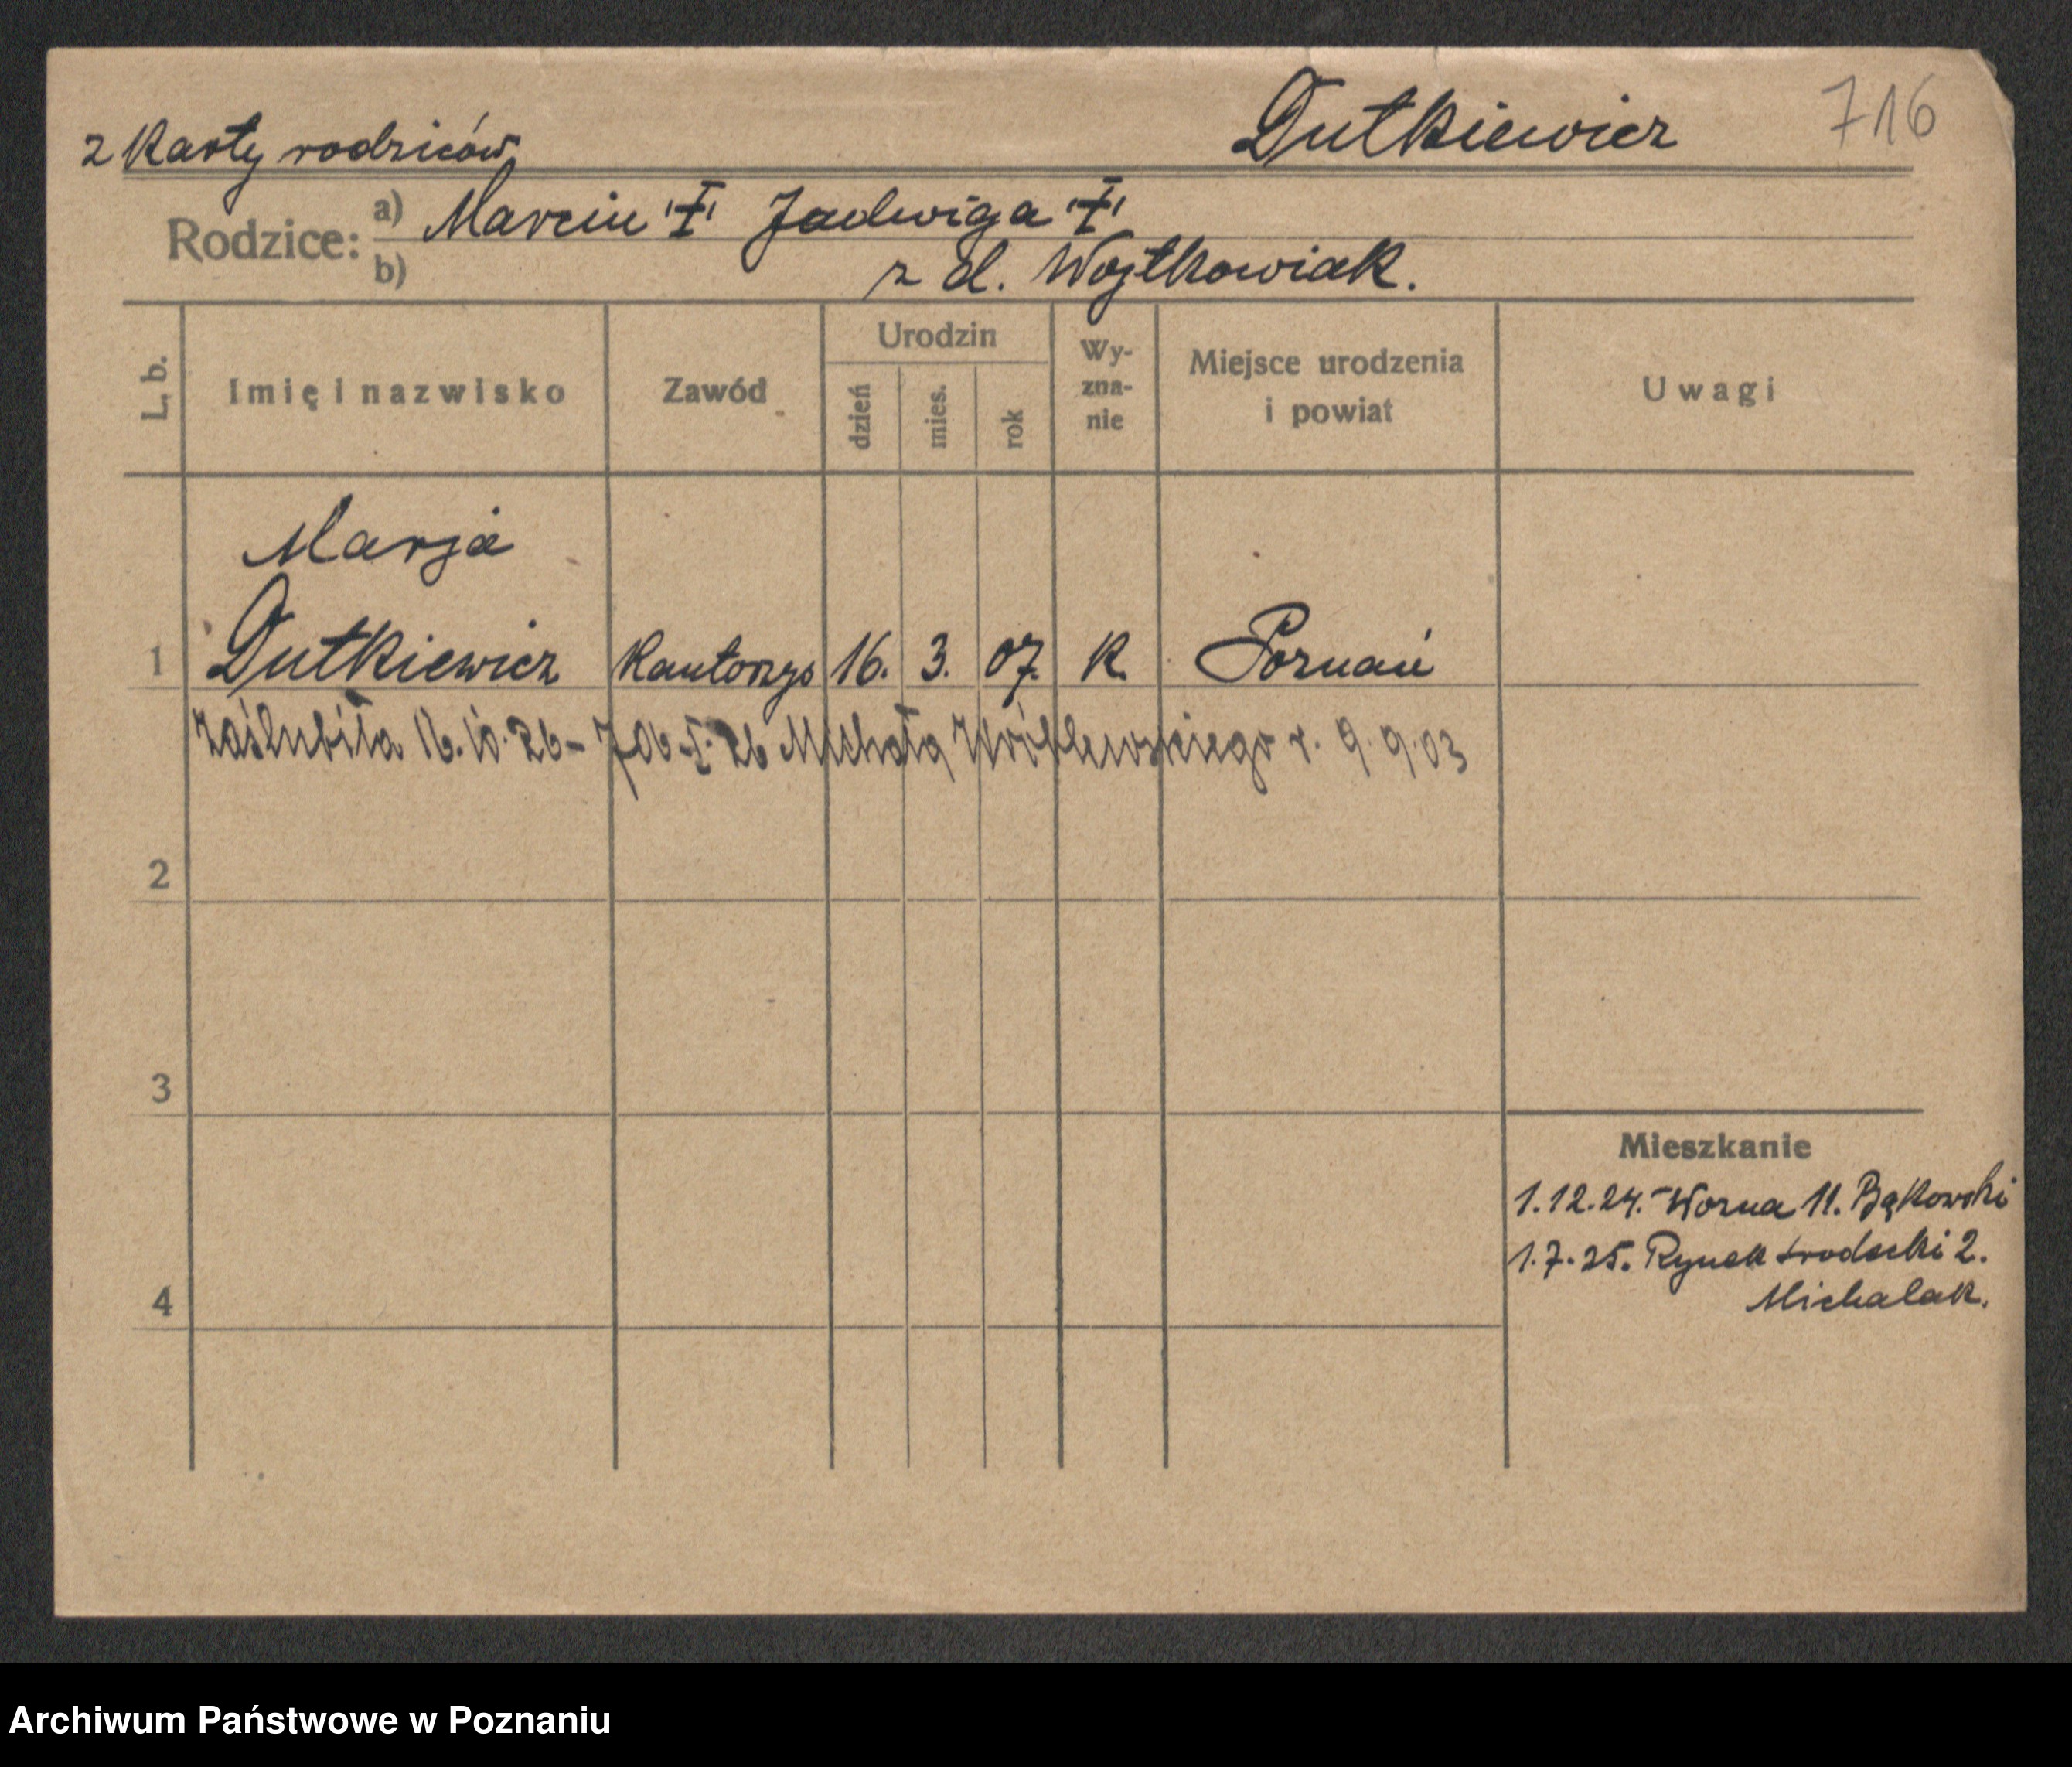 716
z karty rodziców
Dutkiewicz
Rodzice: a) Marcin "†" Jadwiga "†"
b) z d. Wojtkowiak.
L. b. Imię i nazwisko Zawód Urodzin dzień mies. rok Wy-zna-nie Miejsce urodzenia i powiat Uwagi
Marja
1 Dutkiewicz kantorzys 16. 3. 07. K. Poznań
zaślubiła 16.10.26 - 706-I-26 Michała Wróblewskiego r. 9.9.03
2
3
Mieszkanie
1.12.24. Wozna 11. Bąkowski
1.7.25. Rynek środecki 2.
Michalak.
4
Archiwum Państwowe w Poznaniu